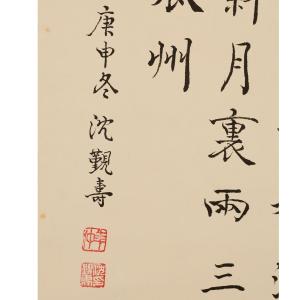 斜月裏兩三
瓜州
庚申冬沈覲壽